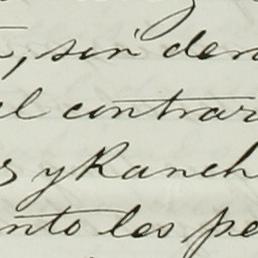 , sin dem
el contrar
s y Ranch
nto les pe